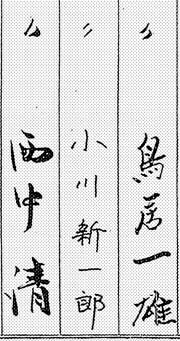 〃 鳥居一雄
〃 小川新一郎
〃 西中清